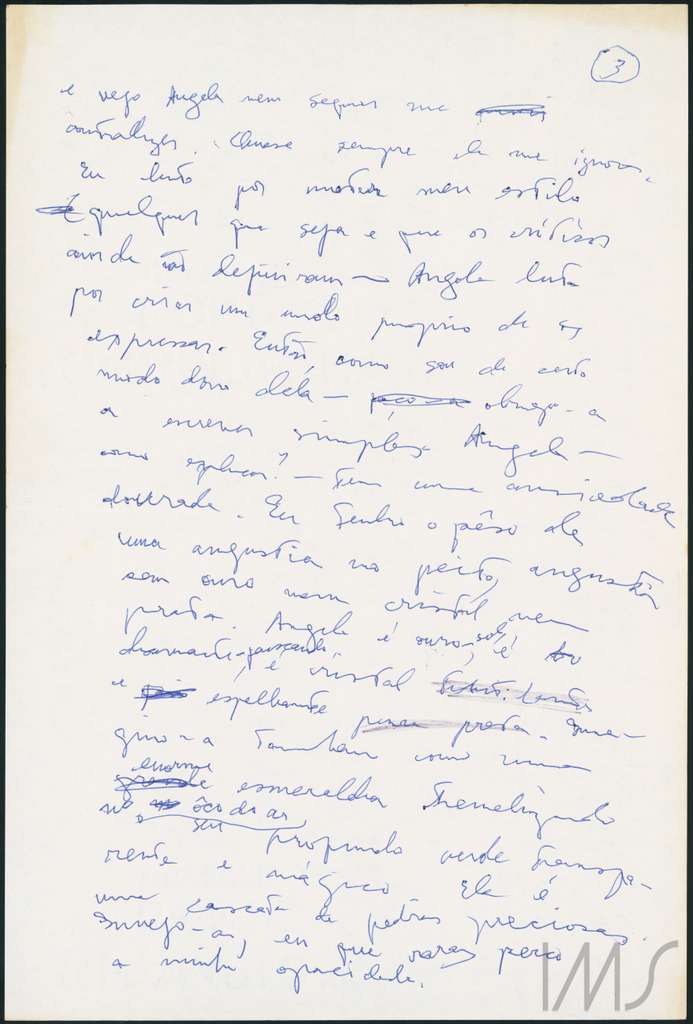 3
e vejo Angela nem sequer me
contradizer. Quase sempre ela me ignora.
Eu luto por meu estilo
qualquer que seja e que os críticos
ainda não definiram — Angela luta
por criar um modo proprio de se
expressar. Então, como sou de certo
modo dono dela — obrigo-a
a escrever simples. Angela —
como explicar? — tem uma ansiedade
dourada. Eu tenho o pêso de
uma angustia no peito, angustia
sem ouro nem cristal nem
prata. Angela é ouro, sol, é
diamante faiscante, é cristal
e espelhante prata. Ima-
gino-a também como uma
enorme
grande esmeralda tremeluzindo
no ôco do ar,
seu profundo verde transpa-
rente e mágico. Ela é
uma cascata de pedras preciosas.
Invejo-a, eu que raras perco
a minha opacidade.
IMS